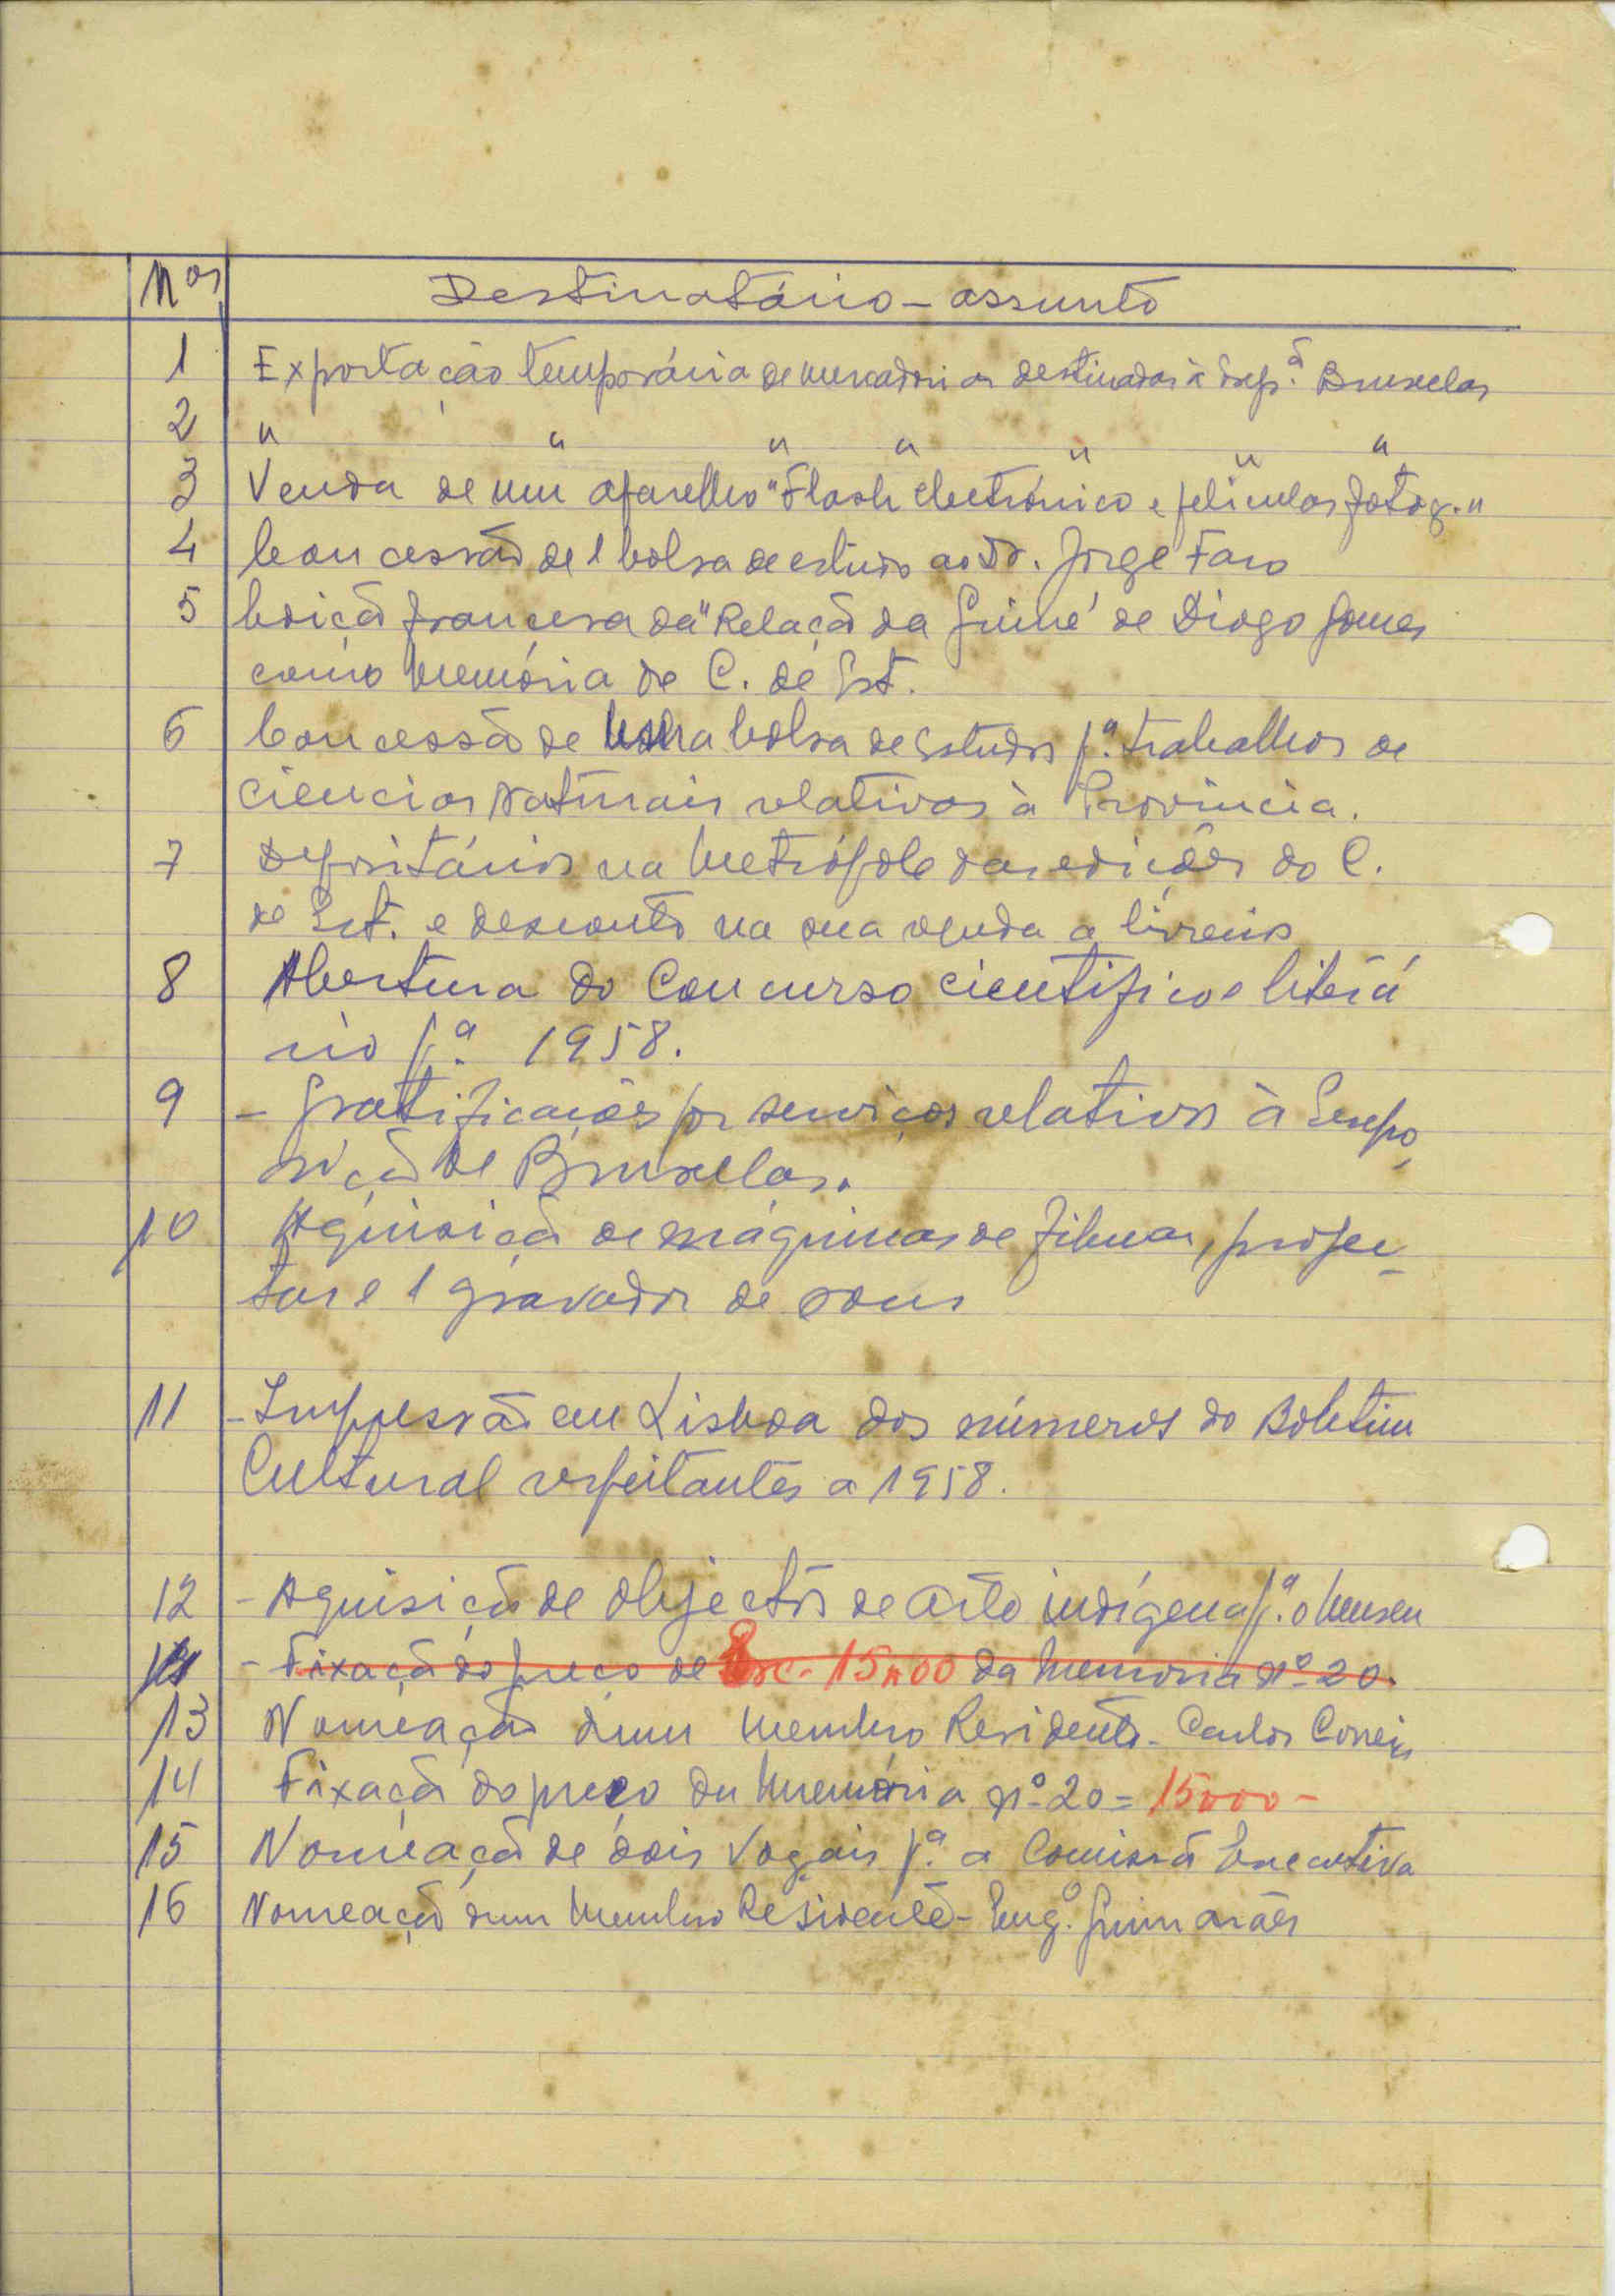 Nos Destinatário - assunto
1 Exportação temporária de mercadorias destinadas à Exp.ª Bruxelas
2 " " " " " " "
3 Venda de um aparelho "Flash electrónico e películas fotog."
4 Concessão de 1 bolsa de estudo ao Dr. Jorge Faro
5 Edição francesa da "Relação da Guiné" de Diogo Gomes
como memória de C. de Est.
6 Concessão de bolsa de Estudos p.ª trabalhos de
ciencias Naturais relativos à Província.
7 Depositários na Metrópole das edições do C.
de Est. e desconto na sua venda a livreiros
8 Abertura do Concurso cientifico e literá
rio p.ª 1958.
9 - Gratificações por serviços relativos à Expo
sição de Bruxelas.
10 Aquisição de máquinas de filmar, projec-
tar e 1 gravador de sons
11 - Impressão em Lisboa dos números do Boletim
Cultural respeitantes a 1958.
12 - Aquisição de objectos de arte indígena p.ª o Museu
- Fixação do preço de Esc. 15$00 da Memoria nº 20.
13 Nomeação dum Membro Residente - Carlos Correia
14 Fixação do preço da Memória nº 20 = 15$00 -
15 Nomeação de dois Vogais p.ª a Comissão Executiva
16 Nomeação dum Membro Residente - Eng.º Guimarães